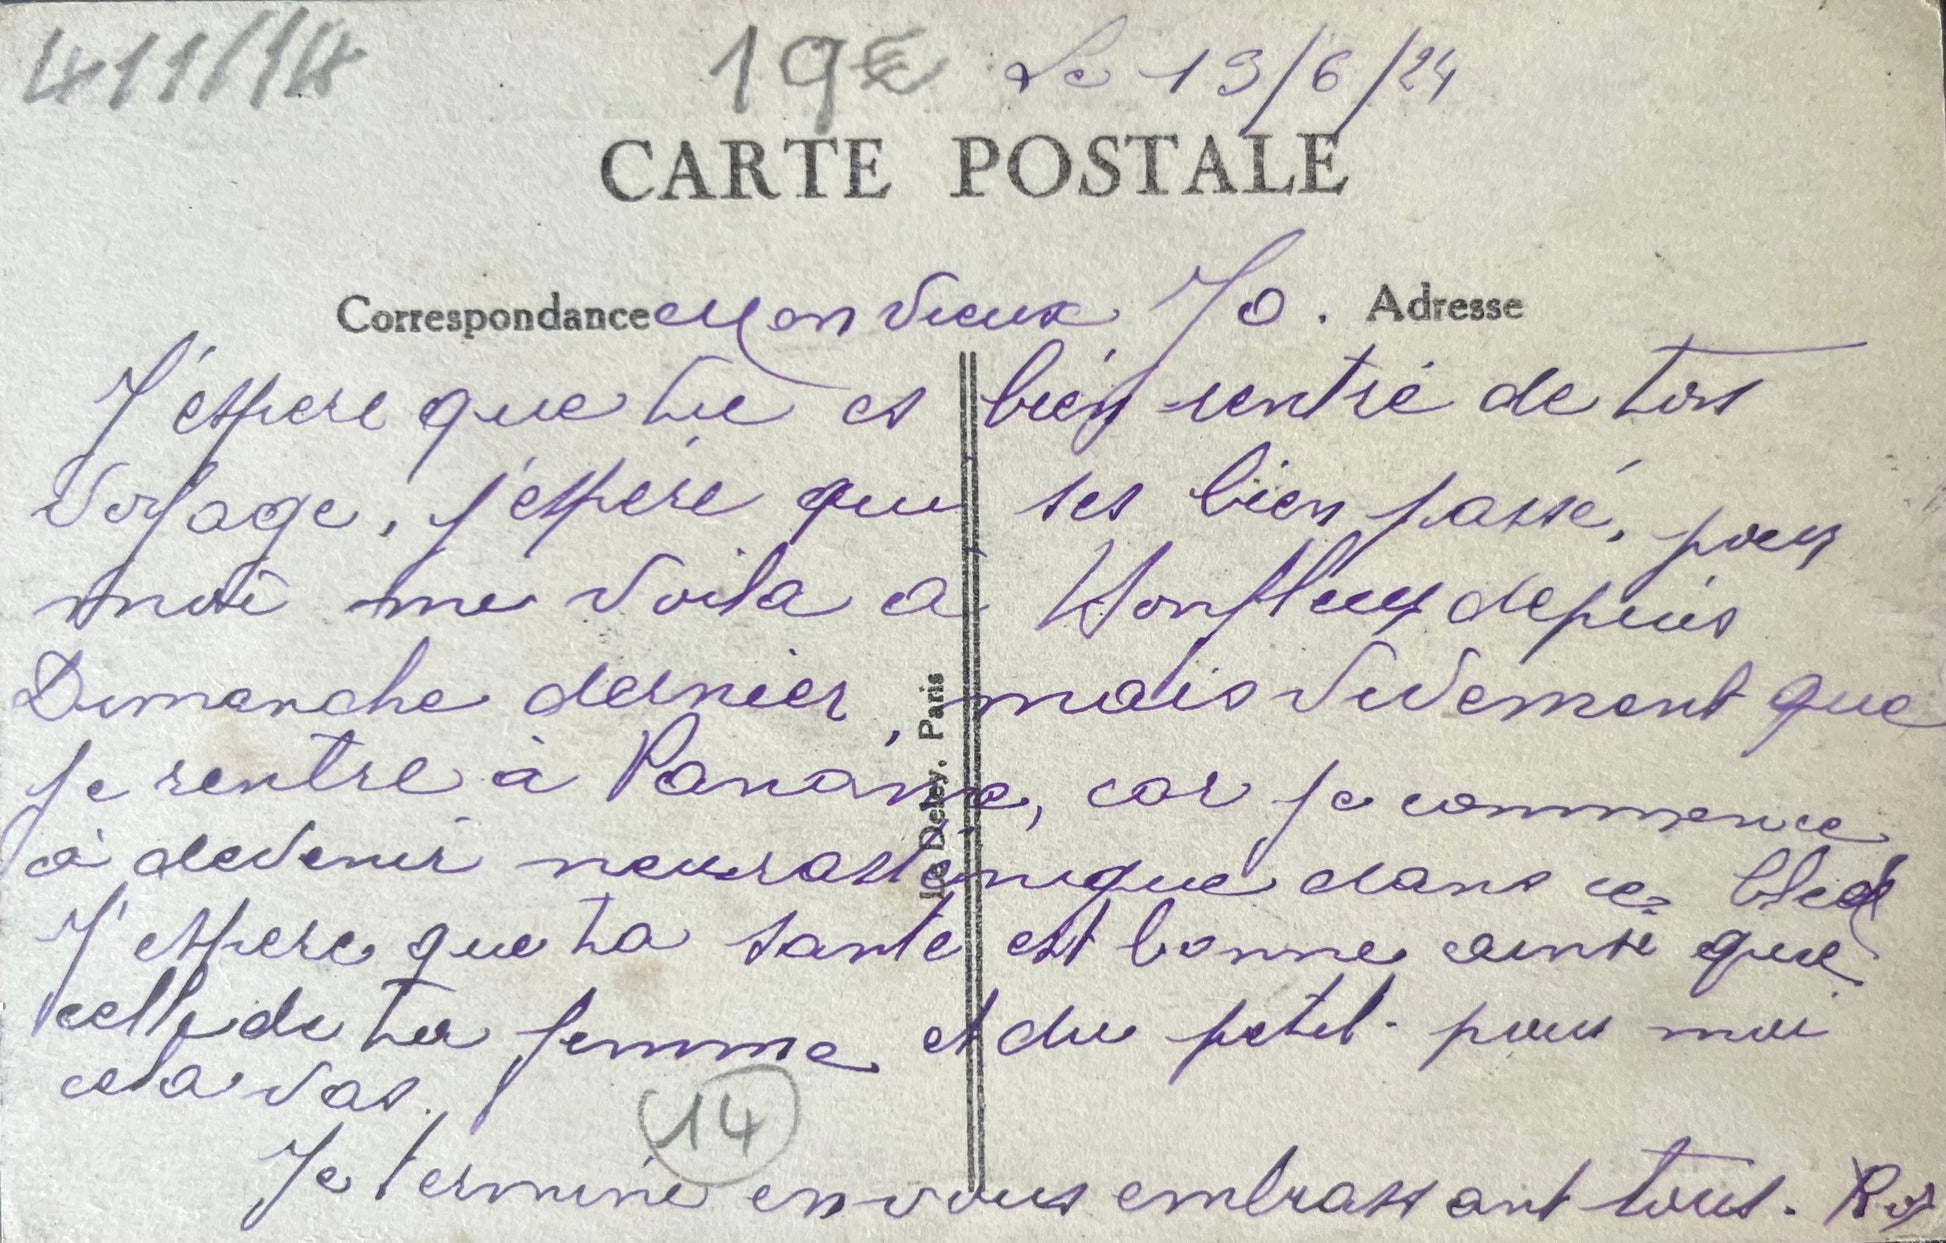 411/14
19€
Le 19/6/24
CARTE POSTALE
Correspondance
Mon Vieux Jo.
Adresse
J'espere que tu es bien rentré de ton
Voyage, j'espére que ses bien passé, pour
moi me voila à Honfleur depuis
Dimanche dernier, mais vivement que
je rentre à Paname, car je commence
à devenir neurasténique dans ce bled
J'espere que ta santé est bonne ainsi que
celle de ta femme et du petit. pour moi
cela vas.
Je termine en vous embrassant tous.
14
Deley. Paris